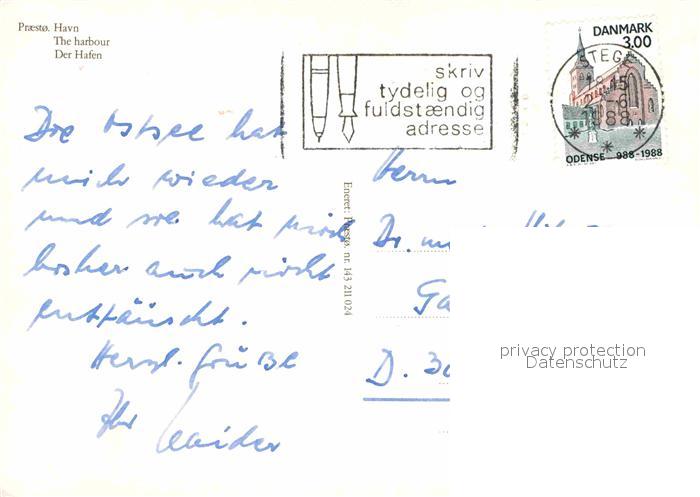 Præstø. Havn
The harbour
Der Hafen
skriv
tydelig og
fuldstændig
adresse
DANMARK
3.00
STEGE
1988
ODENSE 988-1988
Die Ostsee hat
mich wieder
und sie hat mich
bisher auch nicht
enttäuscht.
Herzl. Grüße
Ihr
Eneret: Præstø. nr. 143 211 024
Herrn
Dr. m
Ga
D. 30
privacy protection
Datenschutz